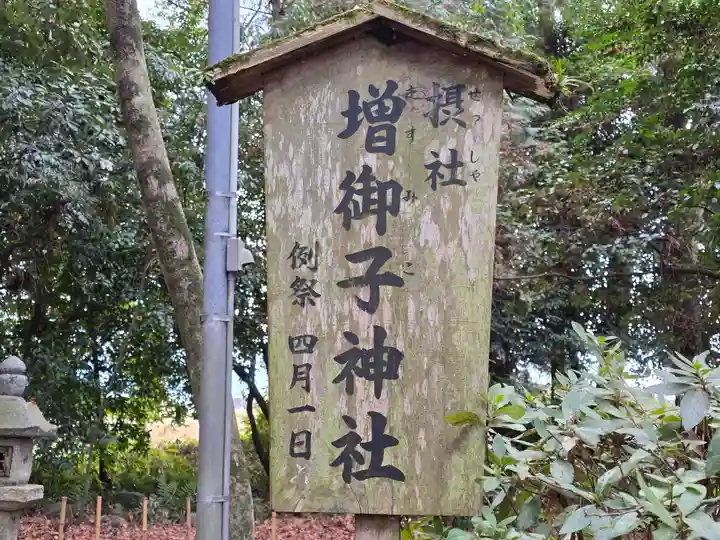 摂社
せっしゃ
増御子神社
ますみこ
例祭 四月一日